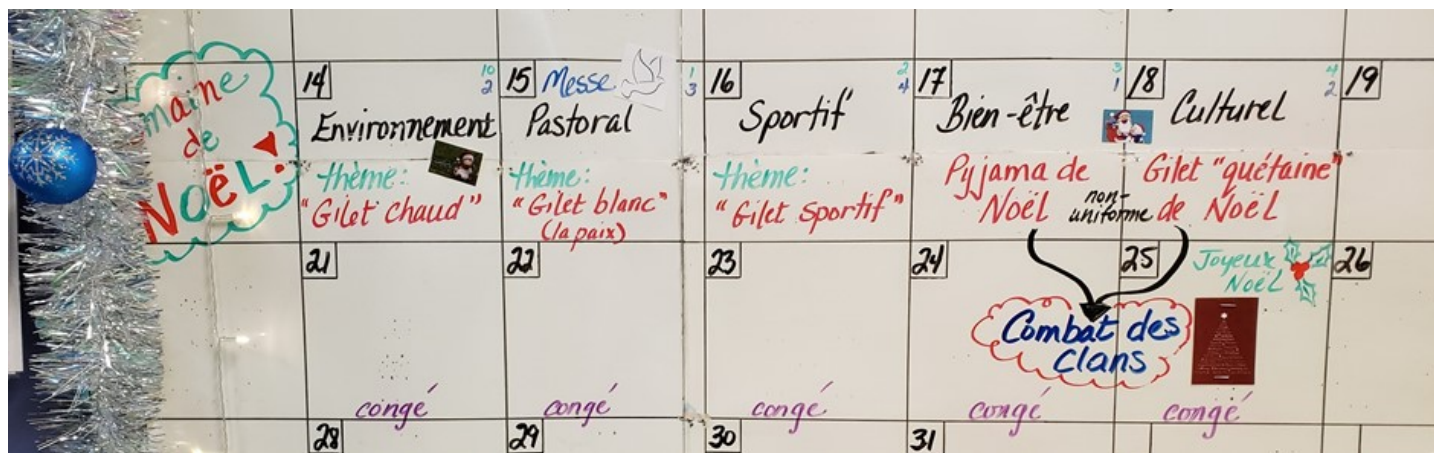 maine
de
NOËL!
14
10
2
Environnement
thème:
"Gilet chaud"
15
Messe
1
3
Pastoral
thème:
"Gilet blanc"
(la paix)
16
2
4
Sportif
thème:
"Gilet sportif"
17
3
1
Bien-être
Pyjama de
Noël
non-
uniforme
18
4
2
Culturel
Gilet "quétaine"
de Noël
19
21
congé
22
congé
23
congé
24
congé
Combat des
clans
25
Joyeux
Noël
congé
26
28
29
30
31